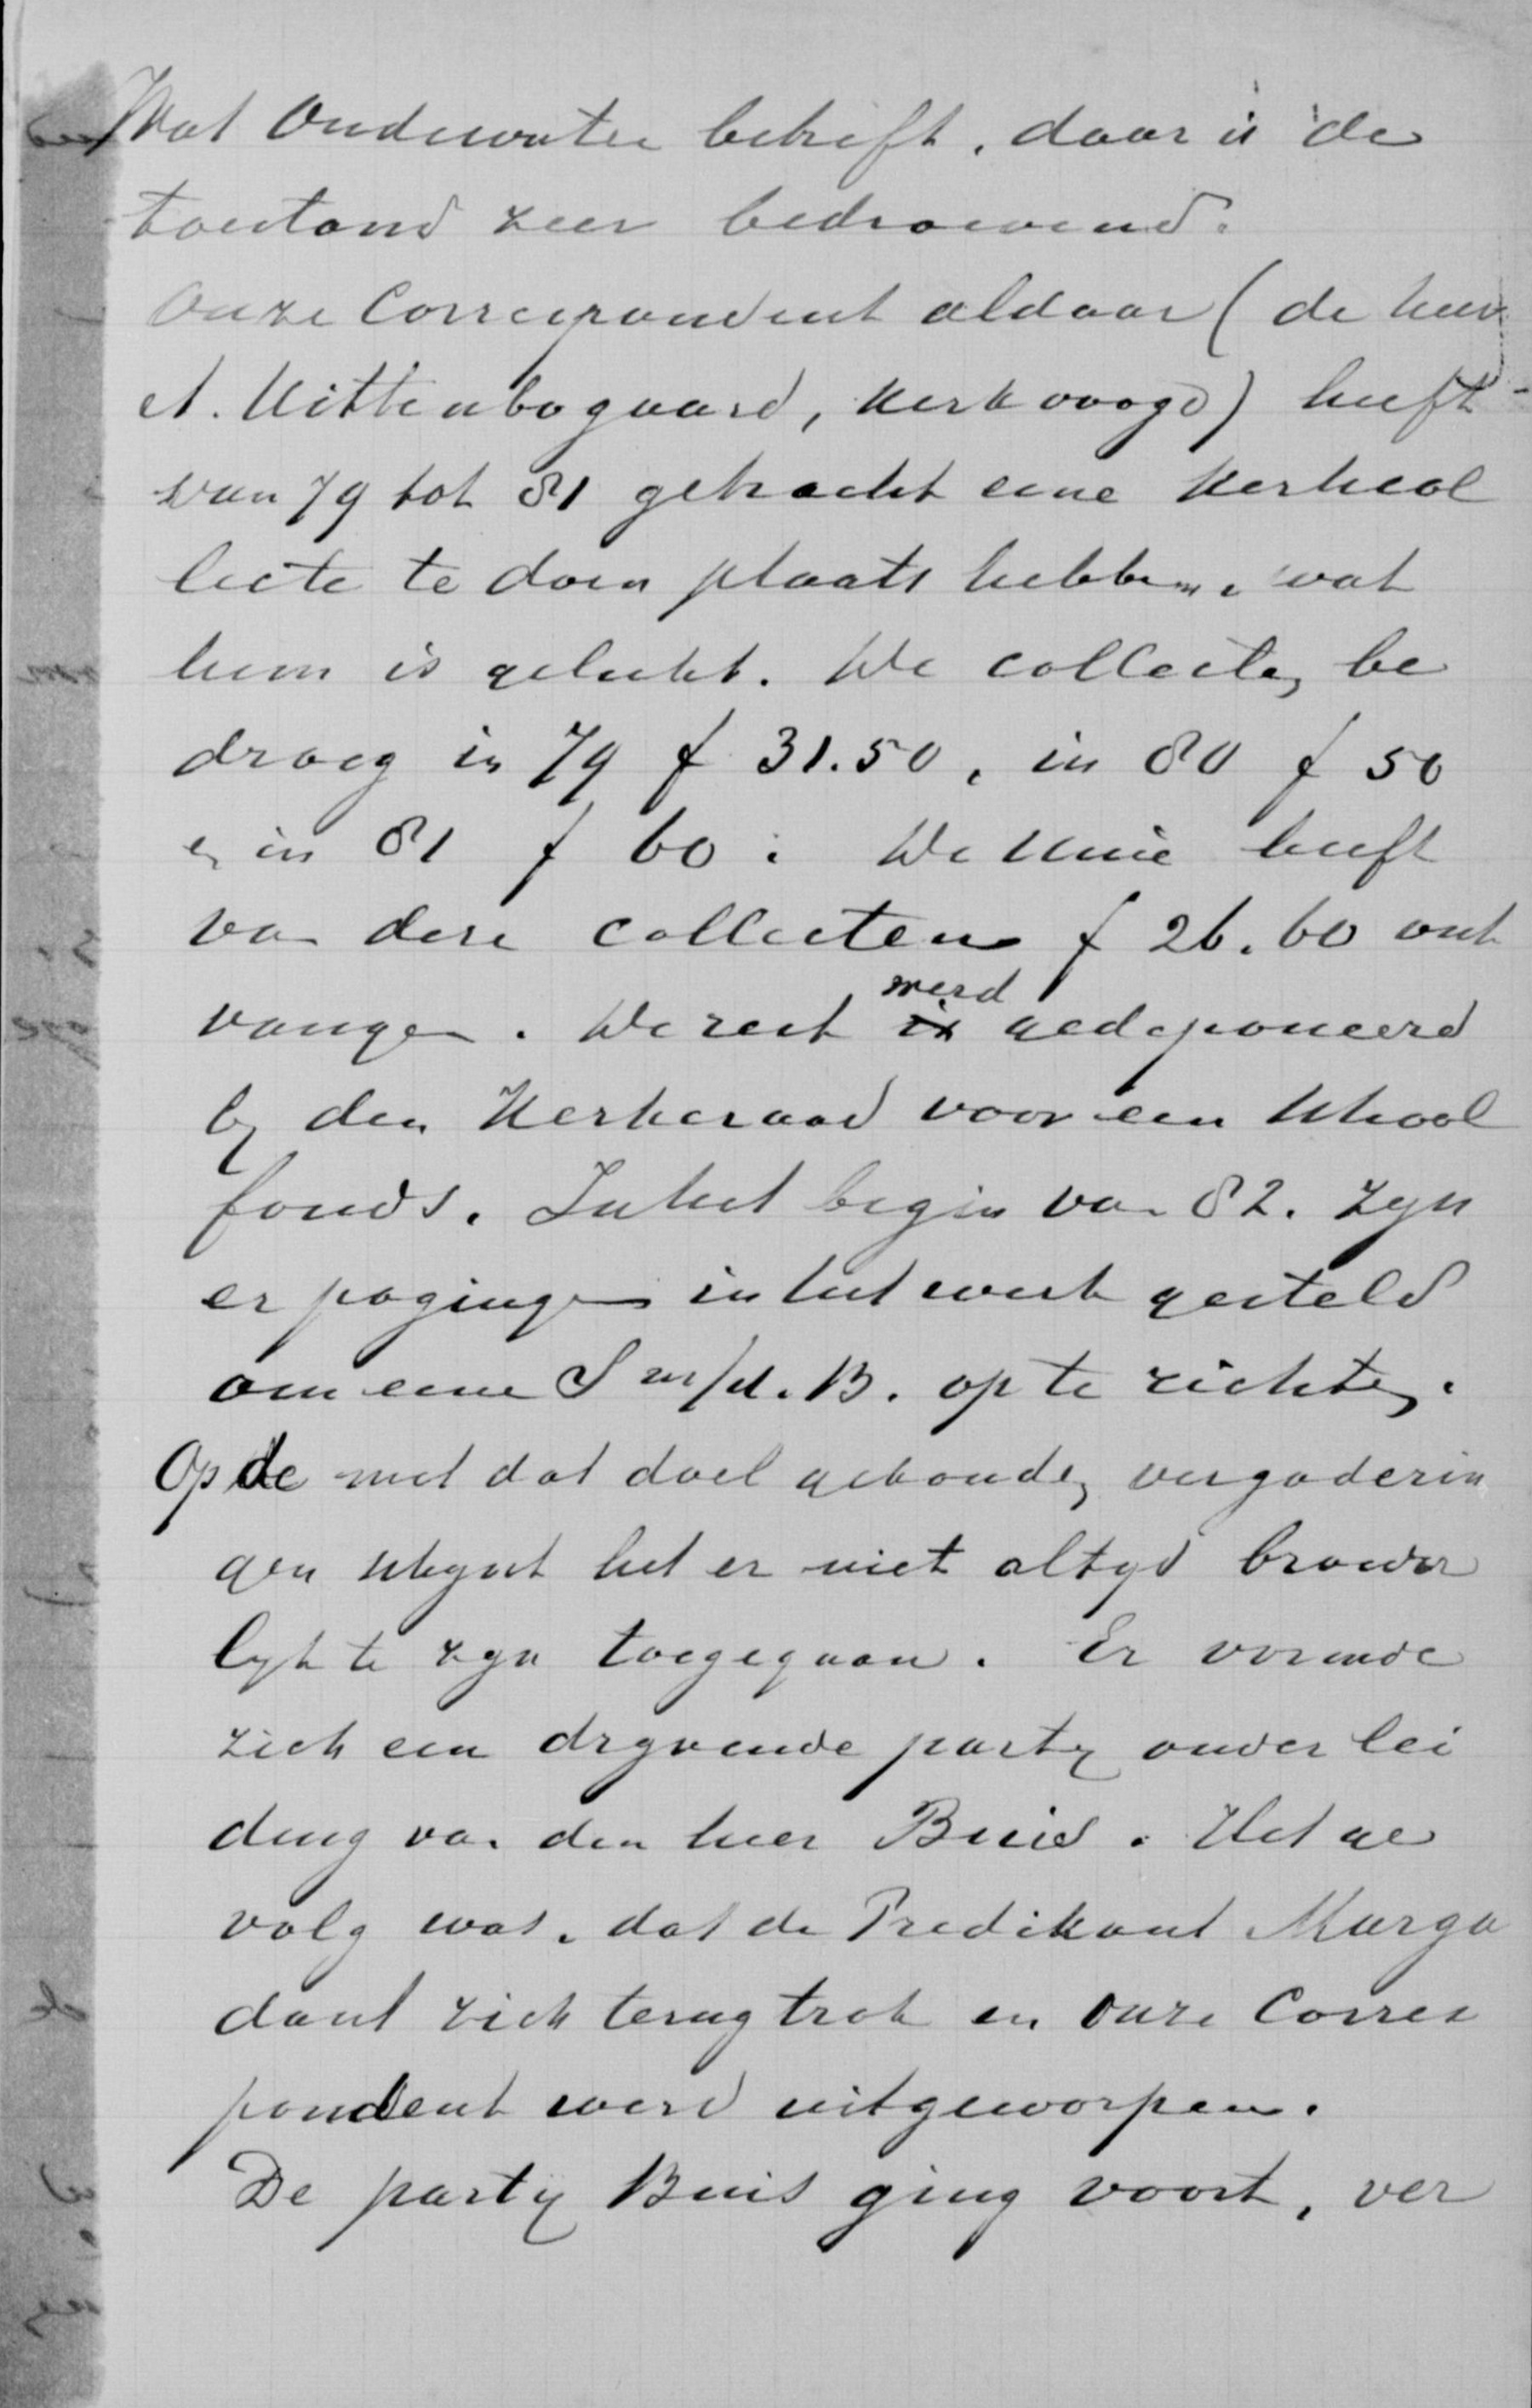 Wat Oudewater betreft, daar is de
toestand zeer bedroevend.
Onze Correspondent aldaar (de heer
A. Uittenbogaard, Kerkvoogd) heeft
van 79 tot 81 getracht eene Kerkcol
lecte te doen plaats hebben, wat
hem is gelukt. De collecten be
droeg in 79 f 31.50, in 80 f 50
en in 81 f 60. De Unie heeft
van deze collecten f 26.60 ont
vangen. De rest werd gedeponeerd
by den Kerkeraad voor een school
fonds. In het begin van 82. zyn
er pogingen in het werk gesteld
om eene S m/d. B. op te richten.
Op de met dat doel gehouden vergaderin
gen schynt het er niet altyd broeder
lyk te zyn toegegaan. Er vormde
zich een dryvende party onder lei
ding van den heer Buis. Het ge
volg was, dat de Predikant Marga
dant zich terug trok en onze Corres
pondent werd uitgeworpen.
De party Buis ging voort, ver